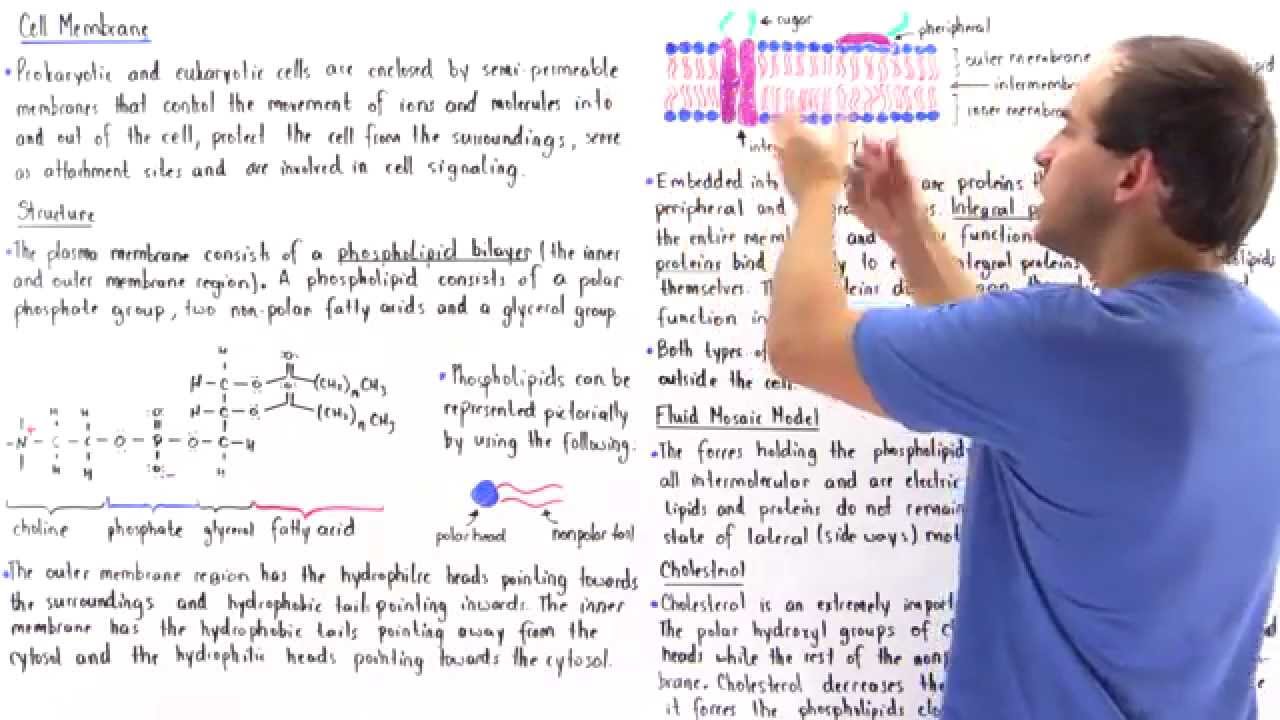 Cell Membrane
• Prokaryotic and eukaryotic cells are enclosed by semi-permeable
membranes that control the movement of ions and molecules into
and out of the cell, protect the cell from the surroundings, serve
as attachment sites and are involved in cell signaling.
Structure
• The plasma membrane consists of a phospholipid bilayer (the inner
and outer membrane region). A phospholipid consists of a polar
phosphate group, two non-polar fatty acids and a glycerol group
H O
H - C - O (CH2)nCH3
H - C - O (CH2)nCH3
H H O
N+ - C - C - O - P - O - C - H
H H O- H
choline phosphate glycerol fatty acid
• Phospholipids can be
represented pictorially
by using the following:
polar head nonpolar tail
• The outer membrane region has the hydrophilic heads pointing towards
the surroundings and hydrophobic tails pointing inwards. The inner
membrane has the hydrophobic tails pointing away from the
cytosol and the hydrophilic heads pointing towards the cytosol.
sugar
pheripheral
outer membrane
inner
pid
• Embedded into are proteins
peripheral and Integral
the entire and function
proteins bind to integral proteins lipids
themselves.
function in
• Both types of
outside the cell.
Fluid Mosaic Model
• The forces holding the phospholipid
all intermolecular and are electric
Lipids and proteins do not remain
state of lateral (side ways) mot
Cholesterol
• Cholesterol is an extremely import
The polar hydroxyl groups of
heads while the rest of the nonp
brane. Cholesterol decreases the
it forces the phospholipids clo